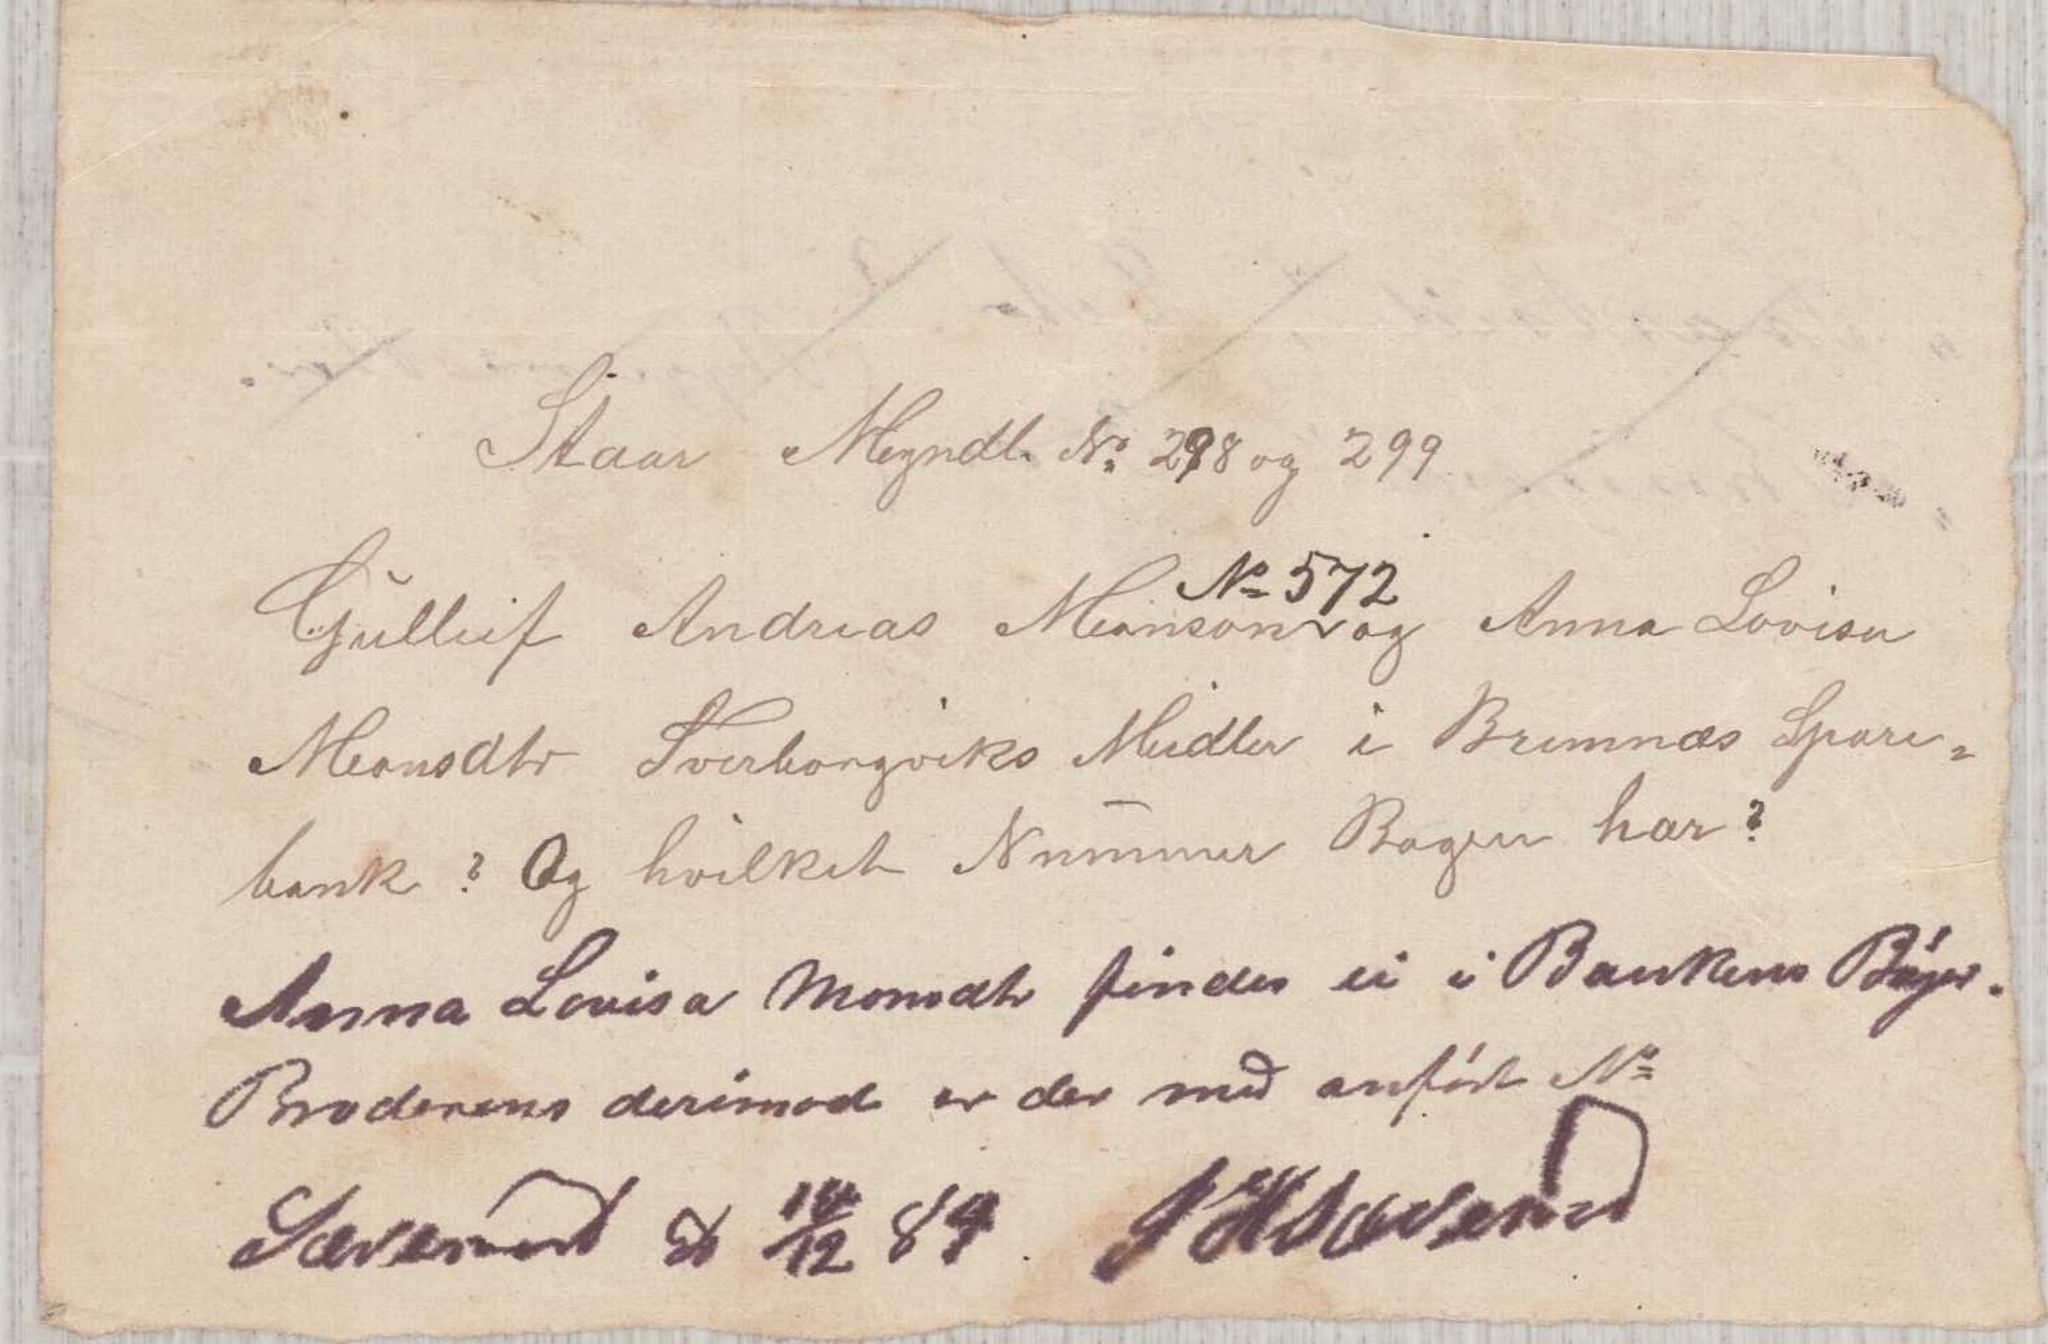 Staar Myndl. No. 298 og 299
No 572
Gulleif Andreas Monsøn og Anna Lovisa
Monsdtr Sverborgviks Midler i Bremnæs Spare-
bank? Og hvilket Nummer Bogen har?
Anna Lovisa Monsdtr findes ei i Bankens Bøger.
Broderens derimod er der med anført No
d 14/12 89.